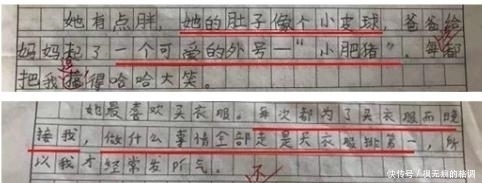 她有点胖，她的肚子像个小皮球，爸爸给
妈妈起了一个可爱的外号—“小肥猪”，每都
把我逗得哈哈大笑。
她最喜欢买衣服。每次都为了买衣服而晚
接我，做什么事情全部走是买衣服排第一，所
以我才经常发脾气。
不
快传号/枫无痕的格调